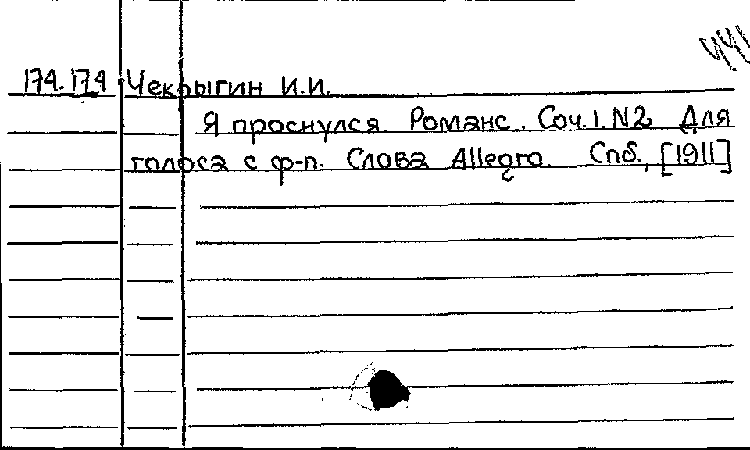 174.174 Чекрыгин И.И.
Я проснулся. Романс. Соч.1.N2. Для
голоса с ф-п. Слова Allegro. Спб., [1911]